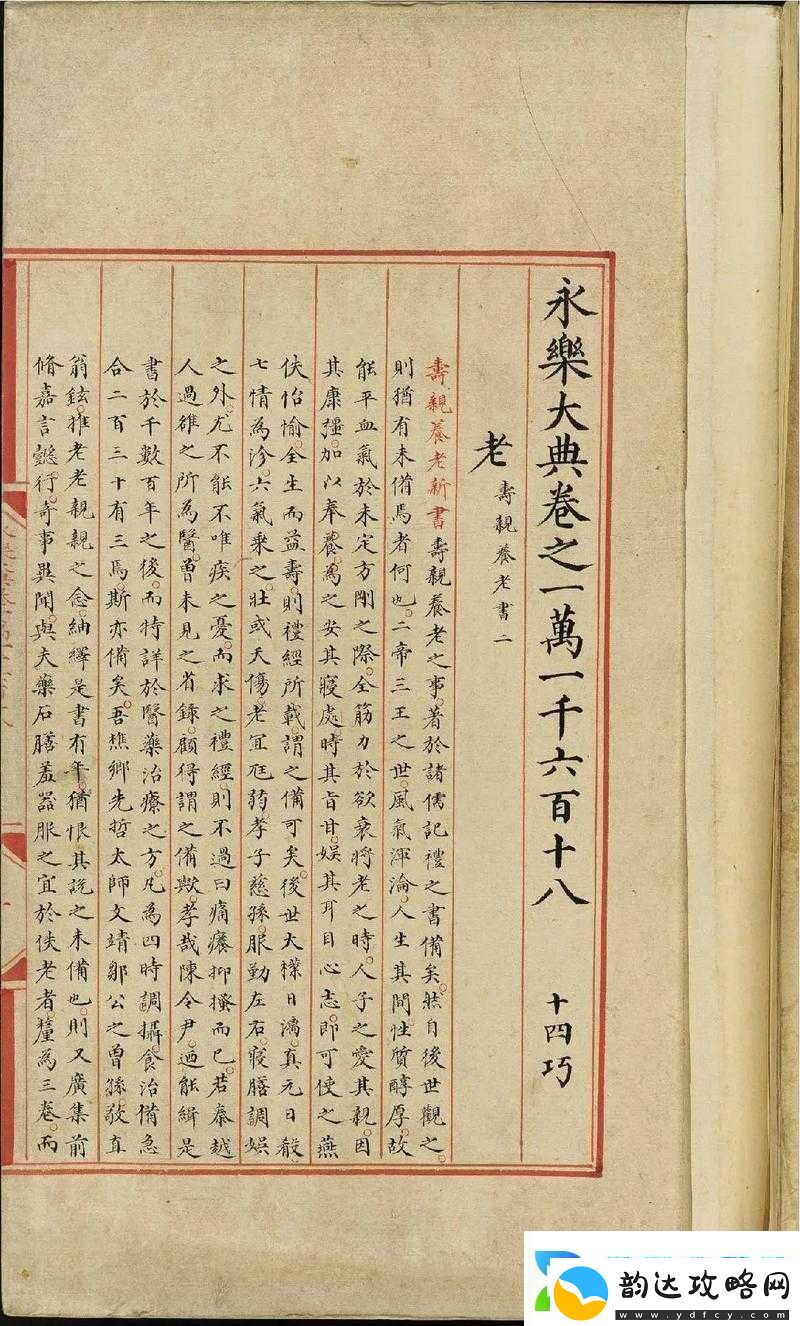 永樂大典卷之一萬一千六百十八 十四巧
老 壽親養老書二
壽親養老新書壽親養老之事。著於諸儒記禮之書備矣。然自後世觀之。
則猶有未備焉者何也。二帝三王之世。風氣渾淪。人生其間性質醇厚。故
能平血氣於未定方剛之際。全筋力於欲衰將老之時。人子之愛其親。因
其康彊。加以奉養。為之安其寢處時其旨甘。娛其耳目心志。即可使之燕
佚怡愉。全生而益壽。則禮經所載。謂之備可矣。後世大樸日漓。真元日
七情為沴。六氣乘之。壯或夭傷老宜尫弱。孝子慈孫。服勤左右。寢膳調娛
之外。尤不能不唯疾之憂。而求之禮經則不過曰痛癢抑搔而已。若秦越
人過雒之所為醫。曾未見之省錄。顧得謂之備歟。孝哉陳令尹。迺能緝是
書於千數百年之後。而特詳於醫藥治療之方。凡為四時調攝。食治備急
合二百三十有三焉斯亦備矣。吾樵鄉先哲太師文靖鄒公之曾孫敬直
翁鉉。推老老親親之念。紬繹是書有年。猶恨其說之未備也。則又廣集前
脩嘉言懿行。奇事異聞。與夫藥石膳羞器服之宜於佚老者。釐為三卷。而
韵达攻略网
www.ydfcy.com